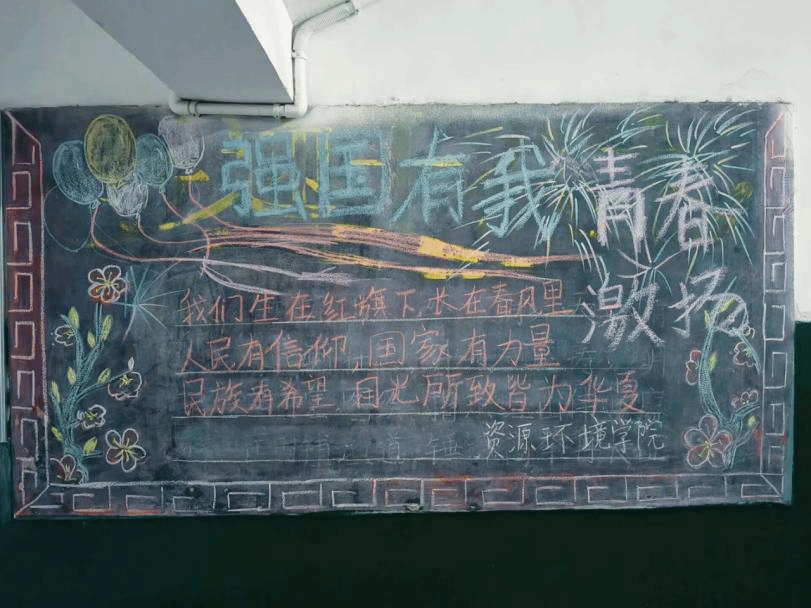 强国有我
青春
激扬
我们生在红旗下,长在春风里
人民有信仰,国家有力量
民族有希望 目光所致皆为华夏
资源环境学院